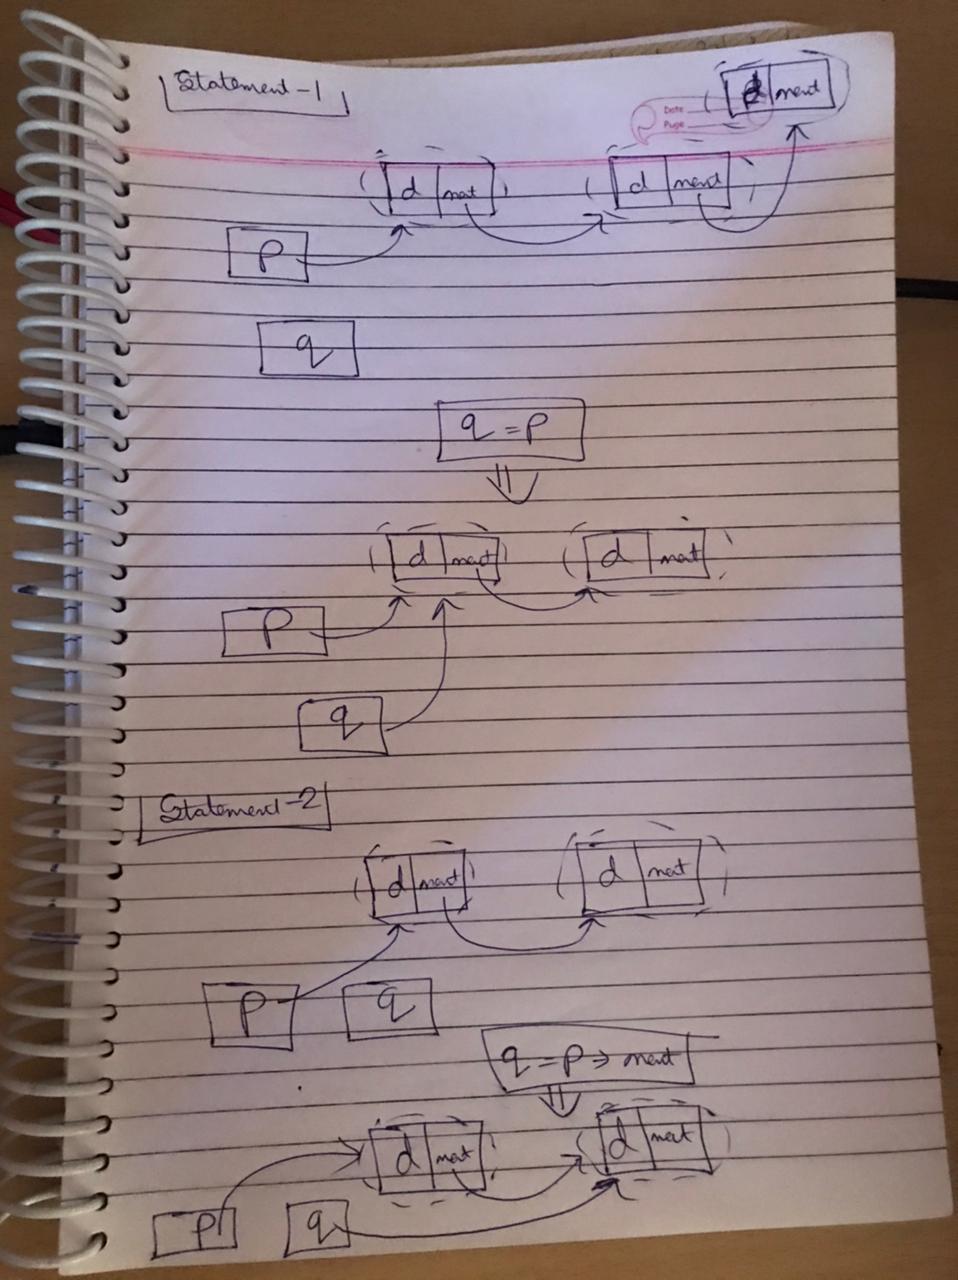 Statement-1
d next
Date
Page
d next d next
P
q
q = p
d next d next
P
q
Statement-2
d next d next
P q
q = p → next
d next d next
P q